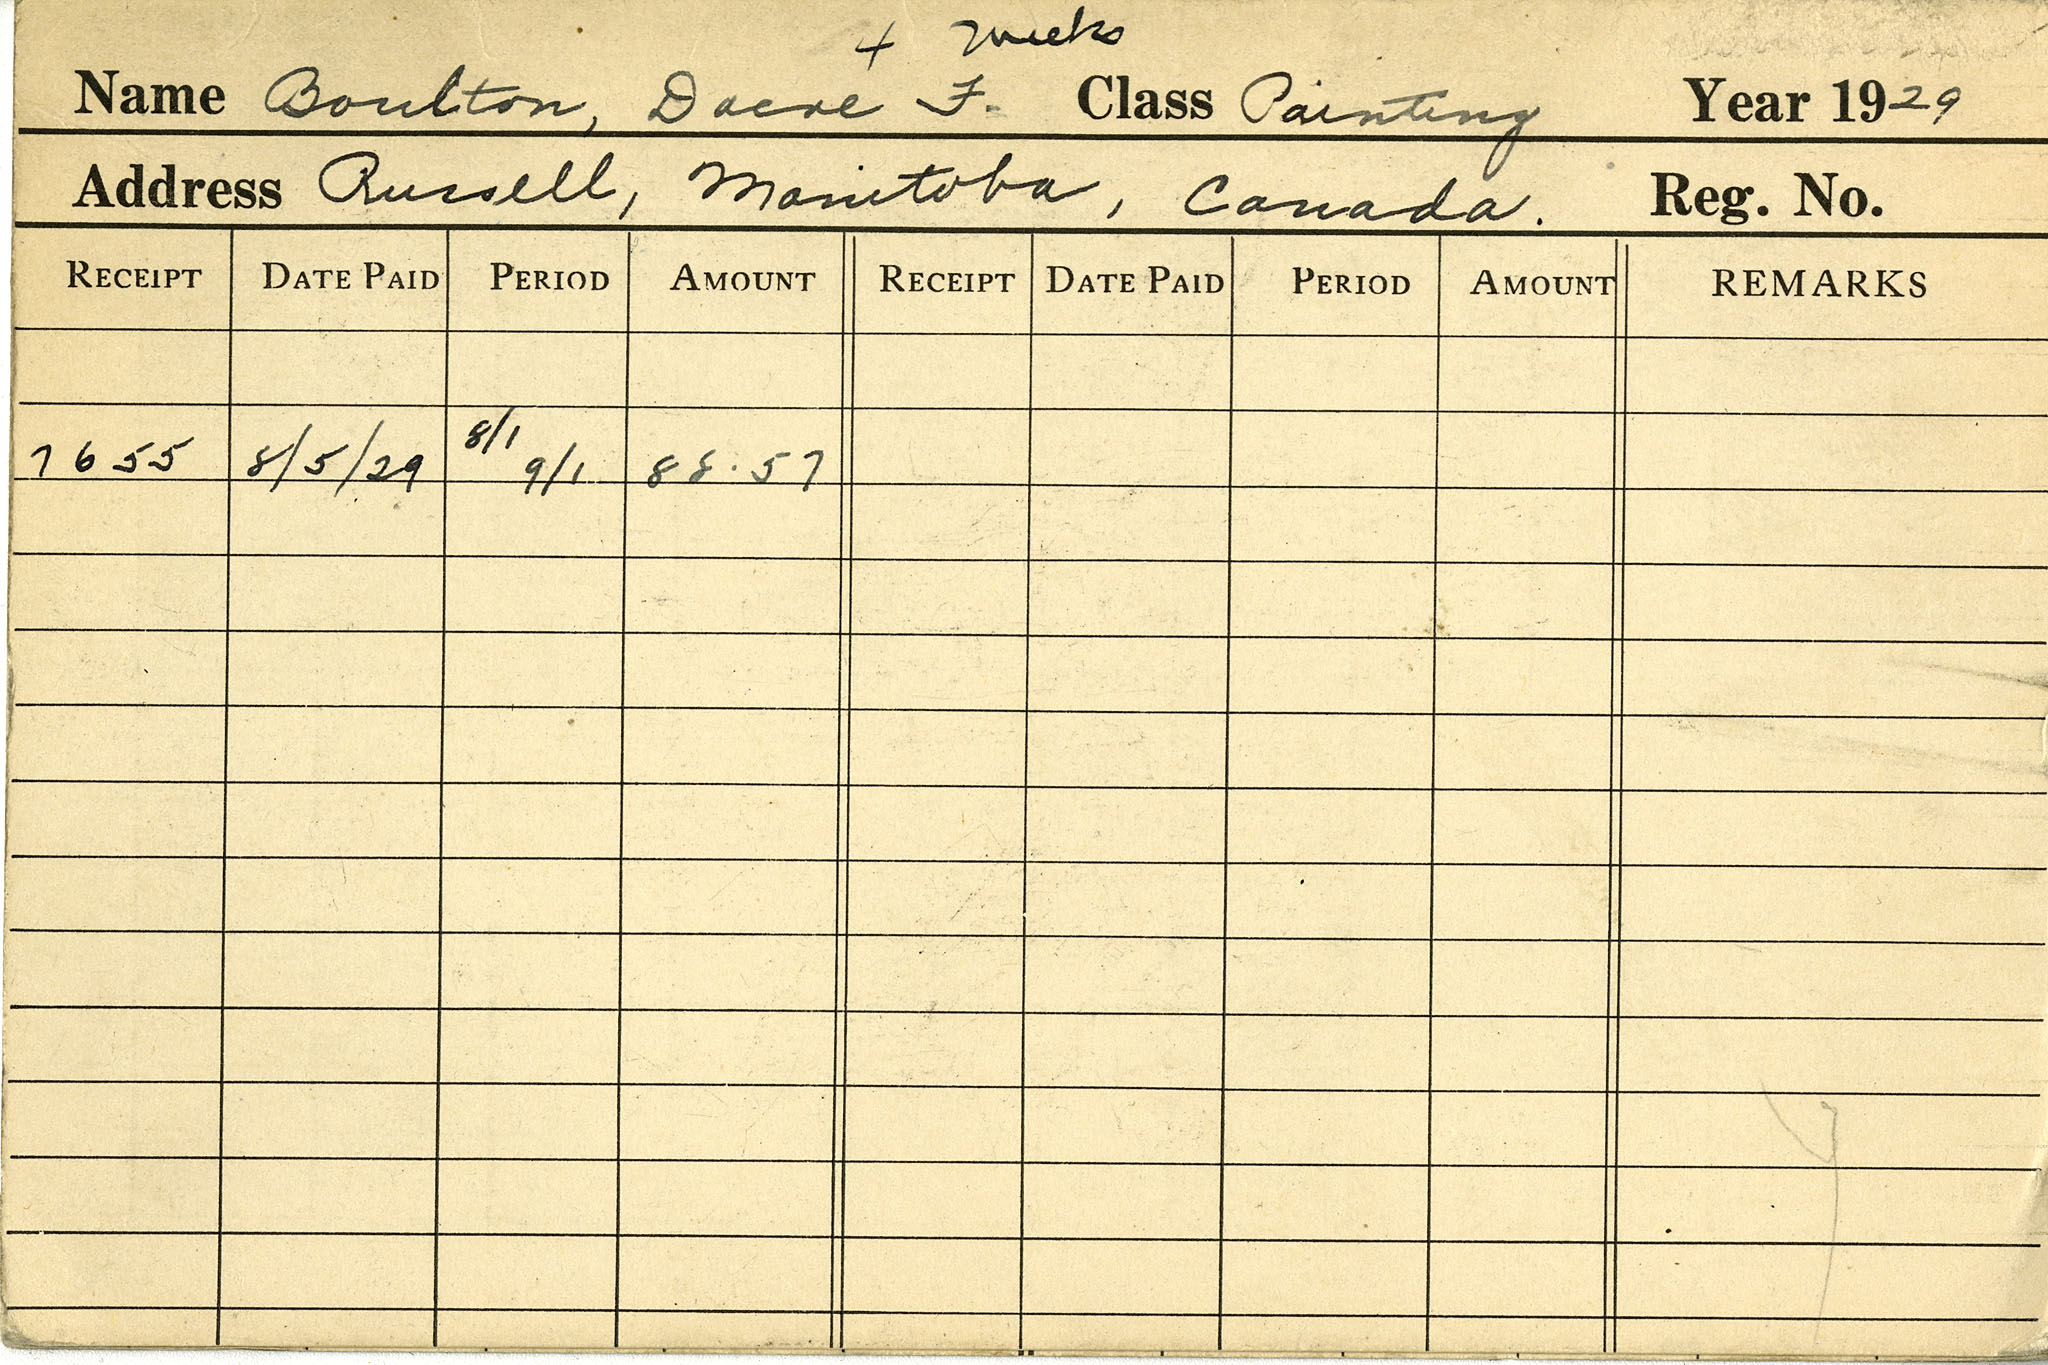 4 weeks
Name Boulton, Dacre F. Class Painting Year 1929
Address Russell, Manitoba, Canada. Reg. No.
RECEIPT DATE PAID PERIOD AMOUNT RECEIPT DATE PAID PERIOD AMOUNT REMARKS
7655 8/5/29 8/1 9/1 88.57